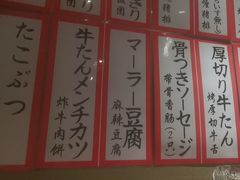 厚切り牛たん
烤厚切牛舌
骨つきソーセージ
帶骨香腸
マーラー豆腐
麻辣豆腐
牛たんメンチカツ
炸牛肉餅
たこぶつ